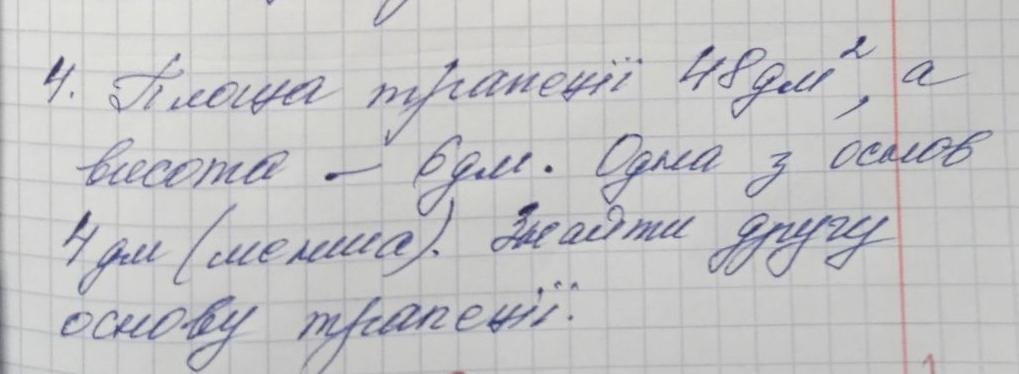 4. Площа трапеції 48дм², а
висота – 6дм. Одна з основ
4дм (менша). Знайти другу
основу трапеції.